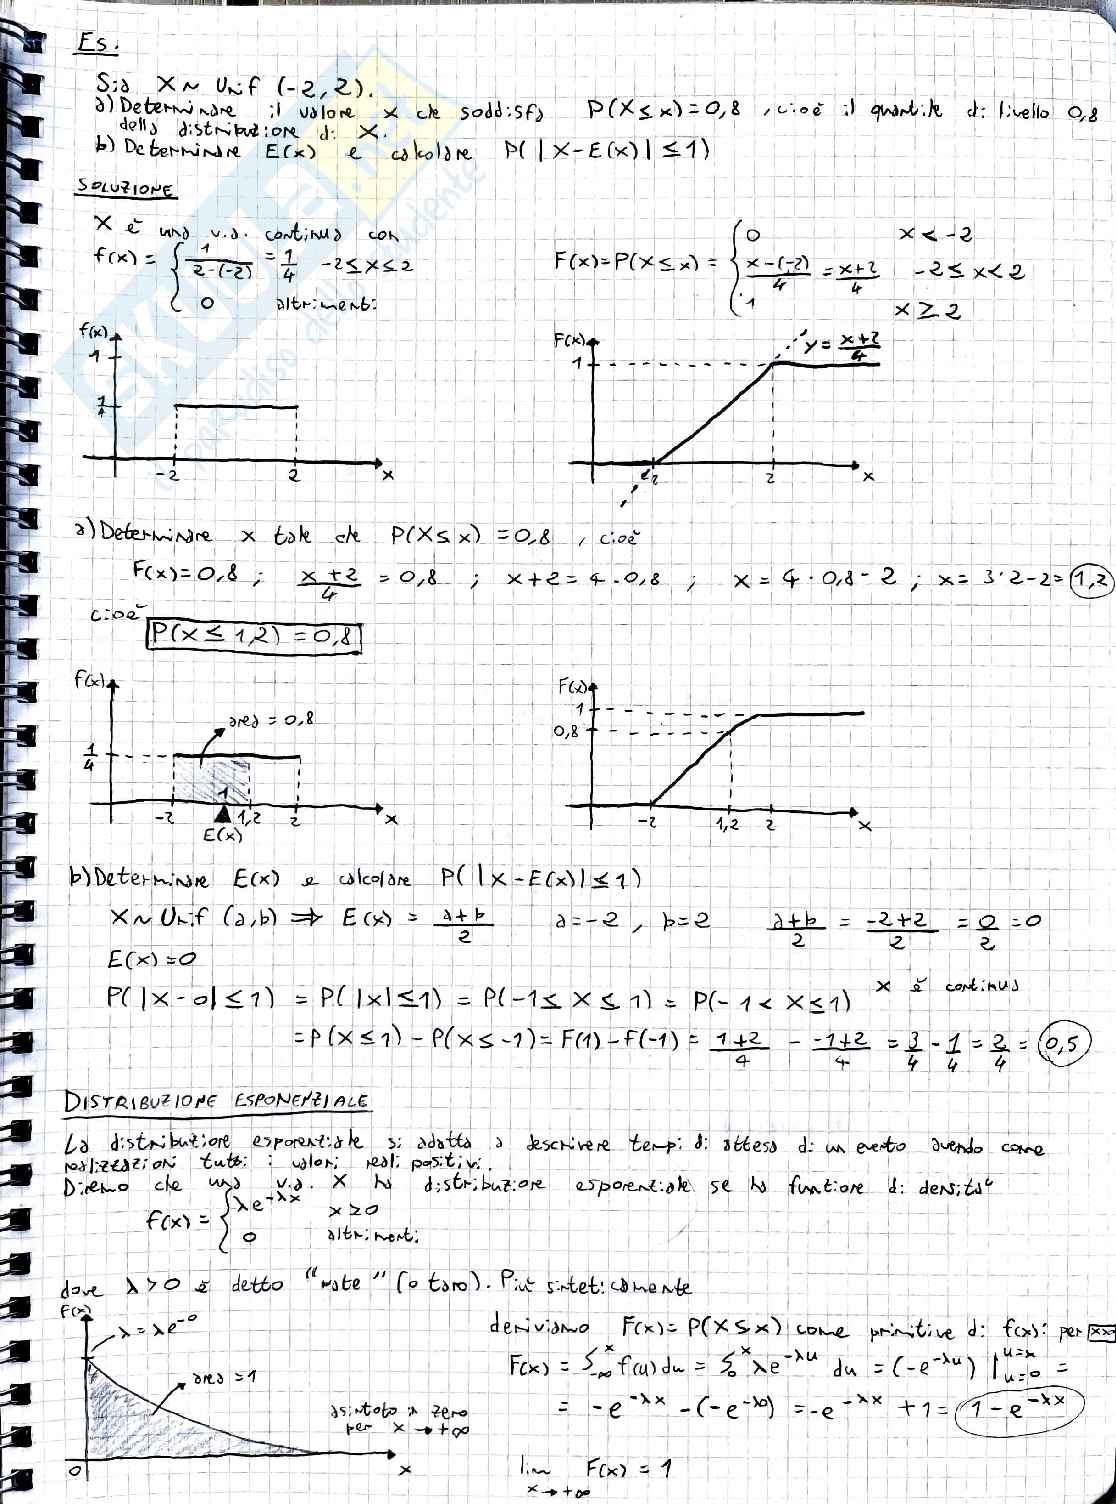 Es.
Sia X ~ Unif (-2, 2).
a) Determinare il valore x che soddisfa P(X ≤ x) = 0,8 , cioè il quantile di livello 0,8
della distribuzione di X.
b) Determinare E(x) e calcolare P( |X - E(x)| ≤ 1)
SOLUZIONE
X è una v.a. continua con
f(x) = { 1/(2-(-2)) = 1/4 -2 ≤ x ≤ 2
0 altrimenti
F(x) = P(X ≤ x) = { 0 x < -2
(x-(-2))/4 = (x+2)/4 -2 ≤ x < 2
1 x ≥ 2
f(x)
1
1/4
-2 2 x
F(x)
1
y = (x+2)/4
-2 2 x
a) Determinare x tale che P(X ≤ x) = 0,8 , cioè
F(x) = 0,8 ; (x+2)/4 = 0,8 ; x+2 = 4·0,8 ; x = 4·0,8 - 2 ; x = 3·2 - 2 = 1,2
cioè
P(X ≤ 1,2) = 0,8
f(x)
area = 0,8
1/4
1
-2 1,2 2 x
E(x)
F(x)
1
0,8
-2 1,2 2 x
b) Determinare E(x) e calcolare P( |X - E(x)| ≤ 1)
X ~ Unif (a,b) ⇒ E(x) = (a+b)/2 a = -2 , b = 2 (a+b)/2 = (-2+2)/2 = 0/2 = 0
E(x) = 0
P( |X - 0| ≤ 1) = P( |X| ≤ 1) = P(-1 ≤ X ≤ 1) = P(-1 < X ≤ 1) X è continua
= P(X ≤ 1) - P(X ≤ -1) = F(1) - F(-1) = (1+2)/4 - (-1+2)/4 = 3/4 - 1/4 = 2/4 = 0,5
DISTRIBUZIONE ESPONENZIALE
La distribuzione esponenziale si adatta a descrivere tempi di attesa di un evento avendo come
realizzazioni tutti i valori reali positivi.
Diremo che una v.a. X ha distribuzione esponenziale se ha funzione di densità
f(x) = { λe^-λx x ≥ 0
0 altrimenti
dove λ > 0 è detto "rate" (o tasso). Più sinteticamente
f(x)
λ = λe^-0
area = 1
asintoto a zero
per x → +∞
0 x
deriviamo F(x) = P(X ≤ x) come primitive di f(x): per
F(x) = ∫_-∞^x f(u) du = ∫_0^x λe^-λu du = (-e^-λu) |_{u=0}^{u=x} =
= -e^-λx - (-e^-λ0) = -e^-λx + 1 = 1 - e^-λx
lim F(x) = 1
x → +∞